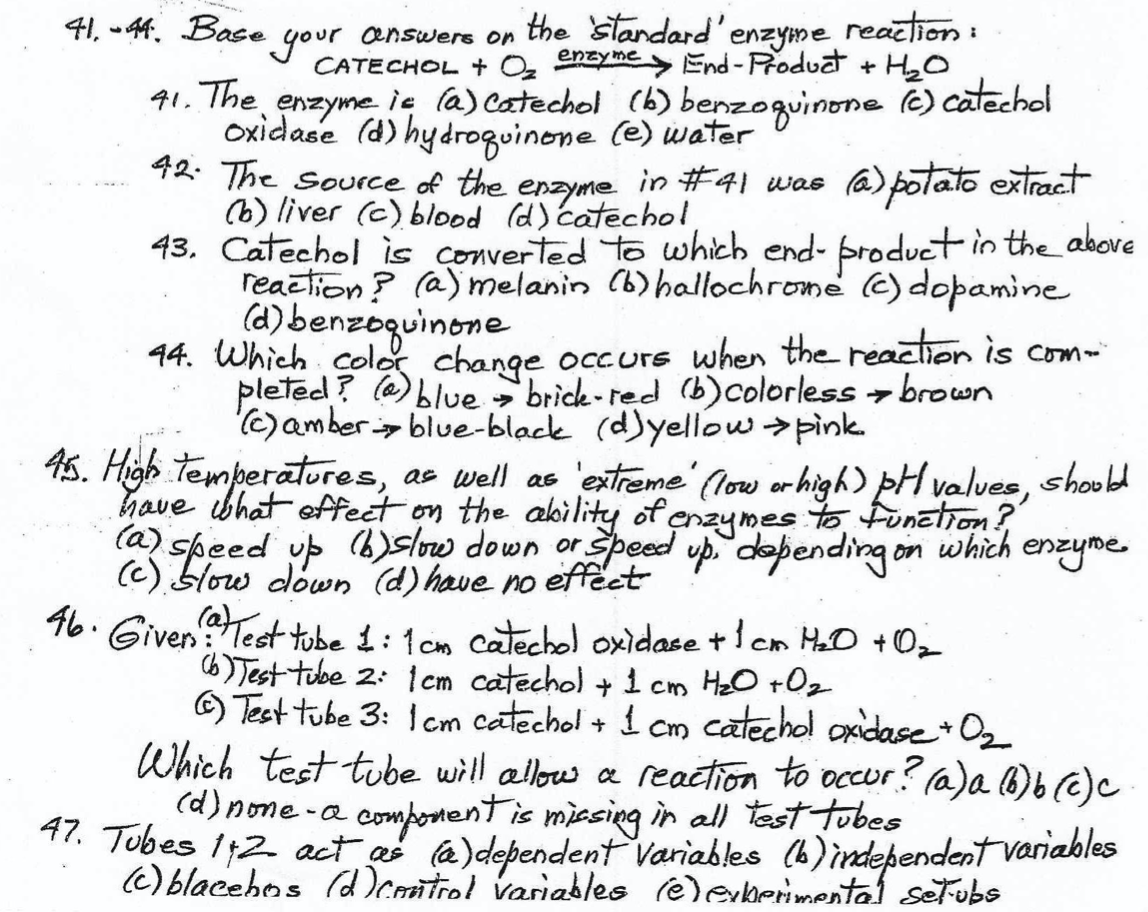 41.-44. Base your answers on the 'standard' enzyme reaction:
CATECHOL + O₂ enzyme→ End-Product + H₂O
41. The enzyme is (a) catechol (b) benzoquinone (c) catechol
oxidase (d) hydroquinone (e) water
42. The source of the enzyme in #41 was (a) potato extract
(b) liver (c) blood (d) catechol
43. Catechol is converted to which end-product in the above
reaction? (a) melanin (b) hallochrome (c) dopamine
(d) benzoquinone
44. Which color change occurs when the reaction is com-
pleted? (a) blue → brick-red (b) colorless → brown
(c) amber → blue-black (d) yellow → pink
45. High temperatures, as well as 'extreme' (low or high) pH values, should
have what effect on the ability of enzymes to function?
(a) speed up (b) slow down or speed up, depending on which enzyme
(c) slow down (d) have no effect
46. Given: (a) Test tube 1: 1cm catechol oxidase + 1 cm H₂O + O₂
(b) Test tube 2: 1cm catechol + 1 cm H₂O + O₂
(c) Test tube 3: 1cm catechol + 1 cm catechol oxidase + O₂
Which test tube will allow a reaction to occur? (a) a (b) b (c) c
(d) none - a component is missing in all test tubes
47. Tubes 1+2 act as (a) dependent variables (b) independent variables
(c) placebos (d) control variables (e) experimental set-ups